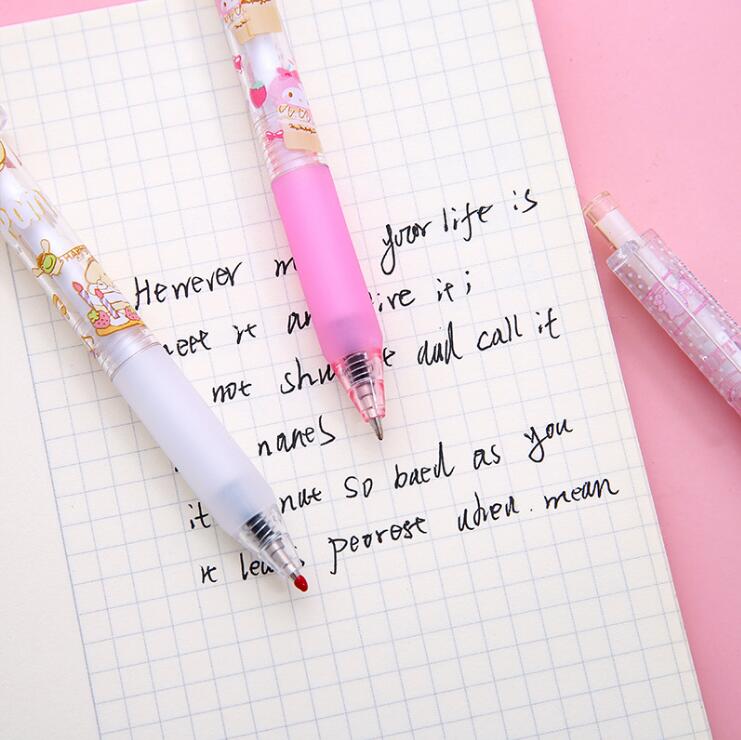 Herrever m your life is
neet it an live it;
not shu t dud call it
nanes
it nut so baed as you
it le s peorest uhen. mean